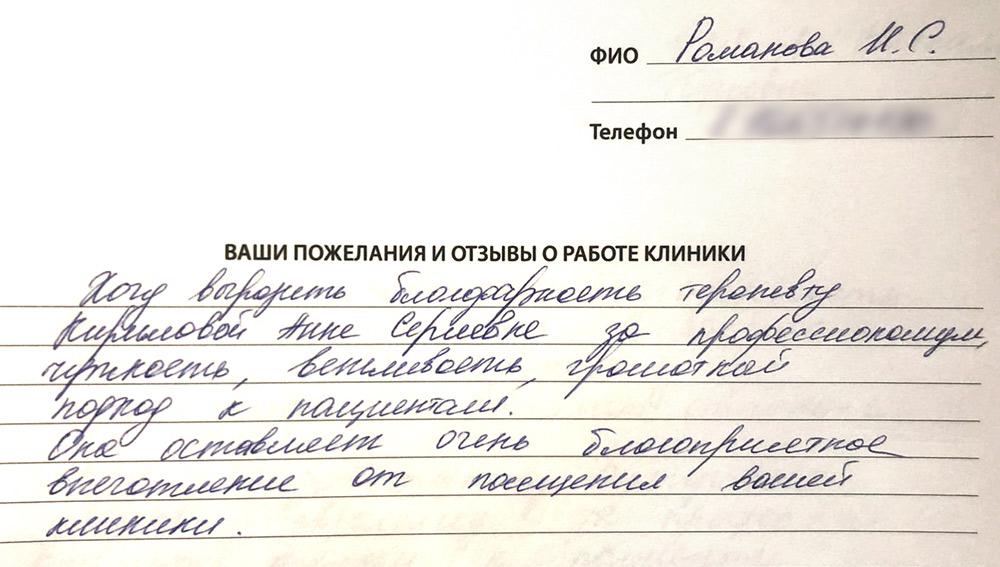 ФИО Романова И. С.
Телефон
ВАШИ ПОЖЕЛАНИЯ И ОТЗЫВЫ О РАБОТЕ КЛИНИКИ
Хочу выразить благодарность терапевту
Кирилловой Анне Сергеевне за профессионализм,
чуткость, вежливость, грамотной
подход к пациентам.
Она оставляет очень благоприятное
впечатление от посещения вашей
клиники.